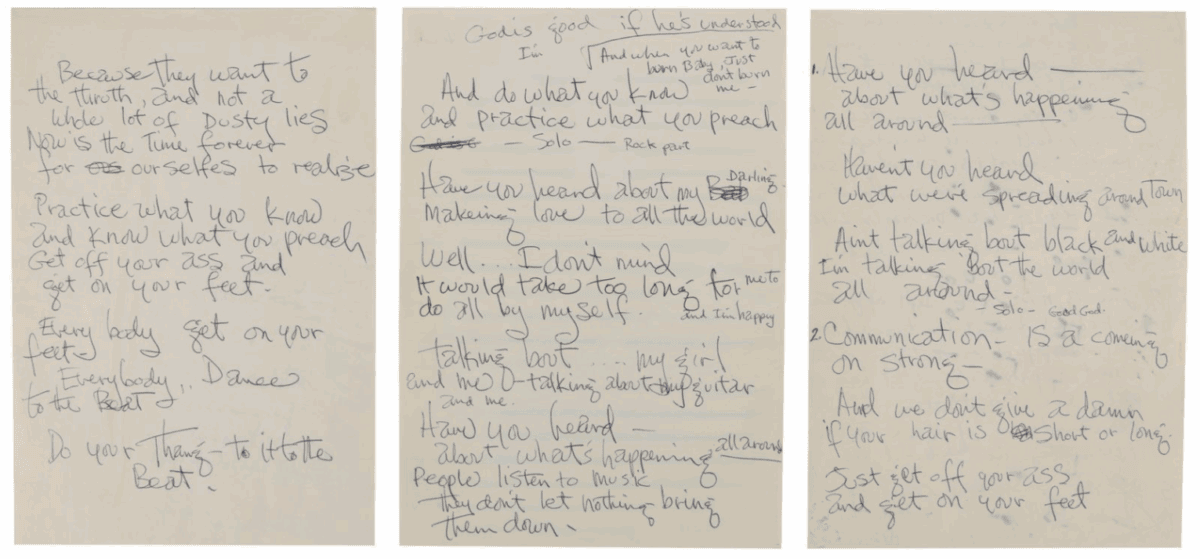 Because they want to
the thruth, and not a
whole lot of Dusty lies
Now is the Time forever
for ourselfes to realize
Practice what you know
and know what you preach
Get off your ass and
get on your feet.
Every body get on your
feet
Everybody,, Dance
to the Beat
Do your Thang - to it to the
Beat.
God is good if he's understood
I'm
And when you want to
burn Baby, Just
don't burn
me -
And do what you know
and practice what you preach
- Solo - Rock part
Have you heard about my Darling
Makeing love to all the world
Well.... I don't mind
It would take too long for me to
do all by myself. and I'm happy
talking bout .... my girl
and me - talking about my guitar
and me.
Have you heard -
about what's happening all around
People listen to music
they don't let nothing bring
them down.
1. Have you heard
about what's happening
all around
Haven't you heard
what we're spreading around Town
Aint talking bout black and white
I'm talking 'Bout the world
all around -
- Solo - God God.
2. Communication - Is a comeing
on strong -
And we don't give a damn
if your hair is short or long.
Just get off your ass
and get on your feet